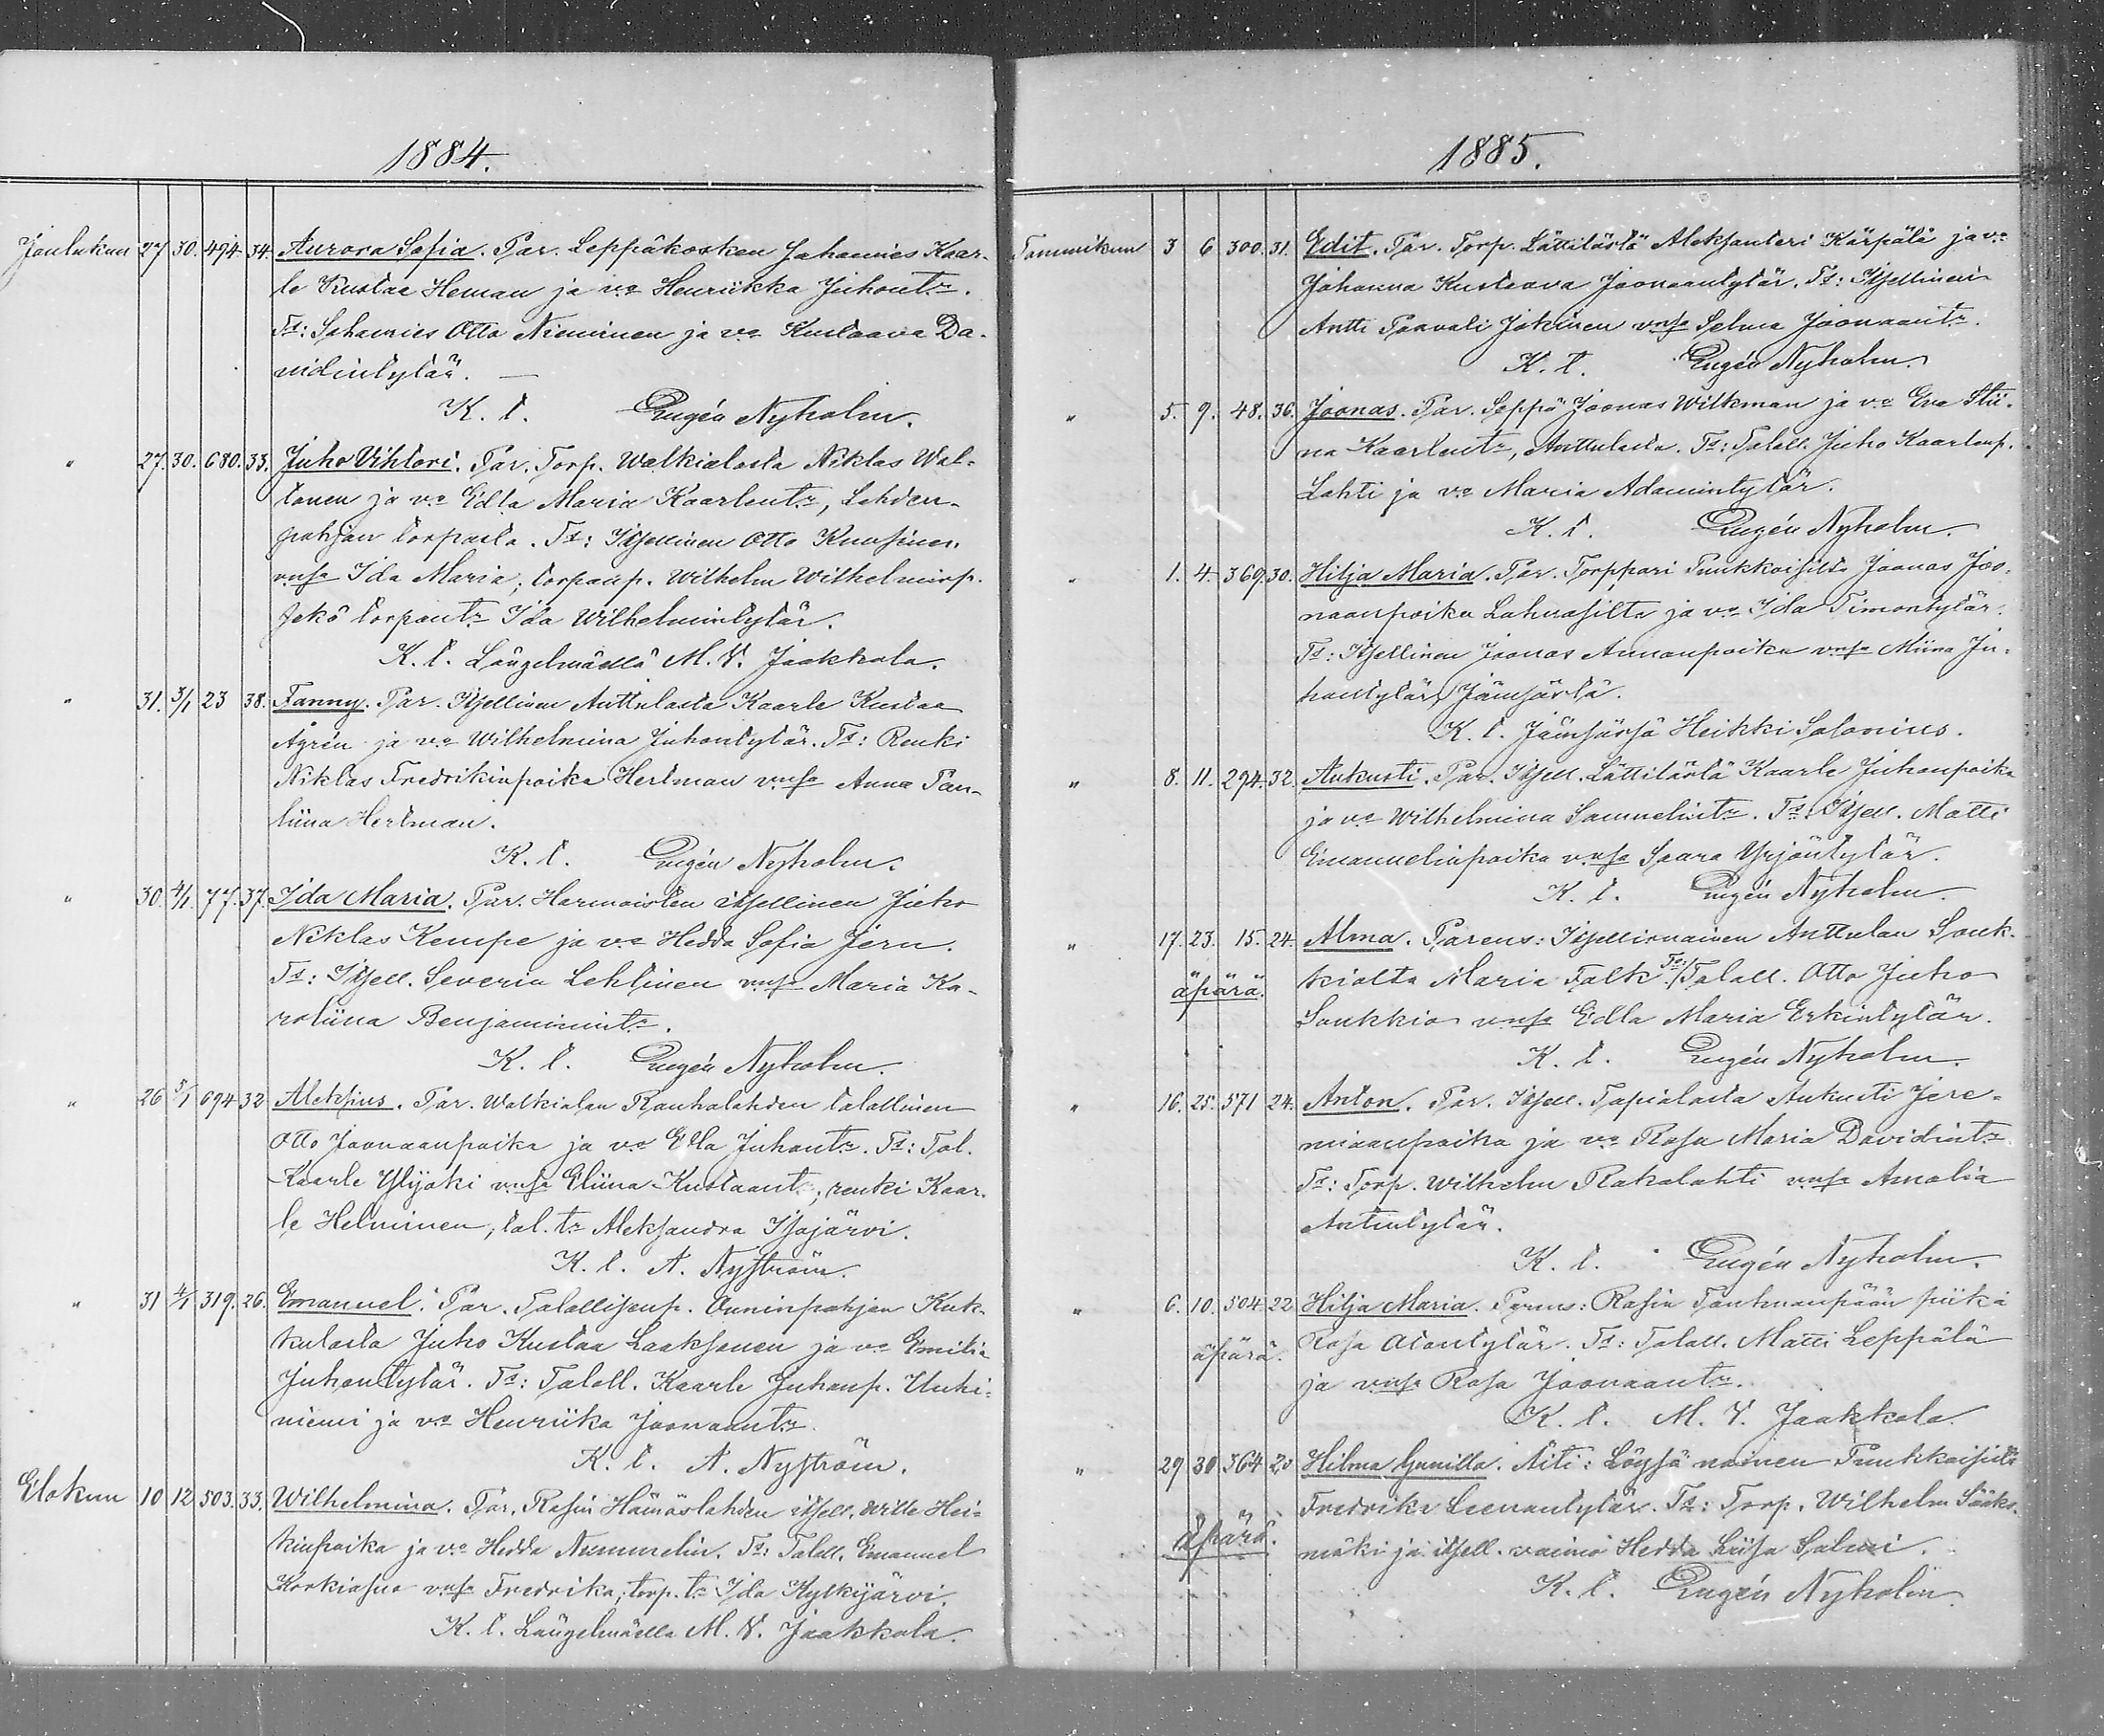 1884.
Joulukuu 27 30. 494. 34. Aurora Sofia. Par. Leppäkosken Johannes Kaar-
le Kustaa Heman ja v:o Henriikka Juhont:r.
Ts: Johannes Otto Nieminen ja v:o Kustaava Da-
vidintytär. —
K. t. Eugén Nyholm.
" 27. 30. 680. 33. Juho Vihtori. Par. Torp. Walkialasta Niklas Wal-
tonen ja v:o Edla Maria Kaarlent:r, Lehden-
pohjan torpasta. Ts: Itsellinen Otto Kuusinen
vnsa Ida Maria; torparip. Wilhelm Wilhelminp.
sekä torpant:r Ida Wilhelmintytär.
K. t. Längelmäellä M. V. Jaakkola.
" 31. 3/1 23 38. Fanny. Par. Itsellinen Anttulasta Kaarle Kustaa
Ågrén ja v:o Wilhelmina Juhontytär. Ts: Renki
Niklas Fredrikinpoika Hertman vnsa Anna Pau-
liina Hertman.
K. t. Eugén Nyholm.
" 30. 4/1. 77. 37. Ida Maria. Par. Harmoisten itsellinen Juho
Niklas Kempe ja v:o Hedda Sofia Jern.
Ts: Itsell. Severin Lehtinen vnsa Maria Ka-
roliina Benjaminint:r.
K. t. Eugén Nyholm.
" 26 5/1 694 32 Aleksius. Par. Walkialan Rauhalahden talollinen
Otto Joonaanpoika ja v:o Ella Juhont:r. Ts: Tal.
Kaarle Ylijoki vnsa Eliina Kustaant:r, renki Kaar-
le Helminen, tal. t:r Aleksandra Isojärvi.
K. t. A. Nyström.
" 31 4/1 319. 26. Emanuel. Par. Talollisenp. Onninpohjan Kuk-
kulasta Juho Kustaa Laaksonen ja v:o Emilia
Juhontytär. Ts: Taloll. Kaarle Juhonp. Unki-
niemi ja v:o Henriika Joonaant:r.
K. t. A. Nyström.
Elokuu 10 12 503. 33. Wilhelmina. Par. Rasin Hämäslahden itsell. Wille Hei-
kinpoika ja v:o Hedda Nummelin. Ts: Taloll. Emanuel
Korkiasuo vnsa Fredrika; torp. t:r Ida Kylkijärvi.
K. t. Längelmäellä M. V. Jaakkola.
1885.
Tammikuu 3 6 300. 31. Edit. Par. Torp. Lättilästä Aleksanteri Kärpälä ja v:o
Johanna Kustaava Joonaantytär. Ts: Itsellinen
Antti Paavali Jokinen vnsa Selma Joonaant:r.
K. t. Eugén Nyholm.
" 5. 9. 48. 36. Joonas. Par. Seppä Joonas Wilkman ja v:o Eva Stii-
na Kaarlent:r, Anttulasta. Ts: Taloll. Juho Kaarlonp.
Lahti ja v:o Maria Adamintytär.
K. t. Eugén Nyholm.
" 1. 4. 369. 30. Hilja Maria. Par. Torppari Puukkoisilta Joonas Joo-
naanpoika Lahnasilta ja v:o Ida Timontytär.
Ts: Itsellinen Joonas Annanpoika vnsa Miina Ju-
hontytär, Jämsästä.
K. t. Jämsässä Heikki Salonius.
" 8. 11. 294. 32. Aukusti. Par. Itsell. Lättilästä Kaarle Juhonpoika
ja v:o Wilhelmina Samuelint:r. Ts: Itsell. Matti
Emanuelinpoika vnsa Saara Yrjöntytär.
K. t. Eugén Nyholm.
" 17. 23. 15. 24. Alma. Parens: Itsellisnainen Anttulan Souk-
äpärä. kialta Maria Falk. Ts: Taloll. Otto Juho
Soukkio vnsa Edla Maria Erkintytär.
K. t. Eugén Nyholm.
" 16. 25. 571 24. Anton. Par. Itsell. Tapialasta Aukusti Jere-
miaanpoika ja v:o Rosa Maria Davidint:r.
Ts: Torp. Wilhelm Rakalahti vnsa Amalia
Antintytär.
K. t. Eugén Nyholm.
" 6. 10. 504. 22 Hilja Maria. Parens: Rasin piika
äpärä. Rosa Ts: Taloll. Matti Leppälä
ja vnsa Rosa Joonaant:r.
K. t. M. V. Jaakkola.
" 29 30 364 20 Hilma Gunilla. Äiti: Löysä nainen Puukkoisista
äpärä. Fredrika Leenantytär. Ts: Torp. Wilhelm Sääks-
mäki ja itsell. vaimo Hedda Liisa Salmi.
K. t. Eugén Nyholm.